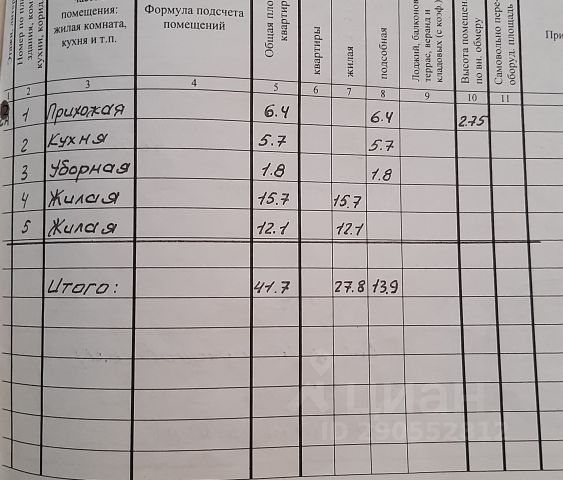 помещения:
жилая комната,
кухня и т.п.
Формула подсчета
помещений
Общая пло
квартир
квартиры
жилая
подсобная
Лоджий, балконов
террас, веранд и
кладовых (с коэф.)
Высота помещен
по вн. обмеру
Самовольно пере-
оборуд. площадь
При
1 2 3 4 5 6 7 8 9 10 11
1 Прихожая 6.4 6.4 2.75
2 Кухня 5.7 5.7
3 Уборная 1.8 1.8
4 Жилая 15.7 15.7
5 Жилая 12.1 12.1
Итого: 41.7 27.8 13.9
циан